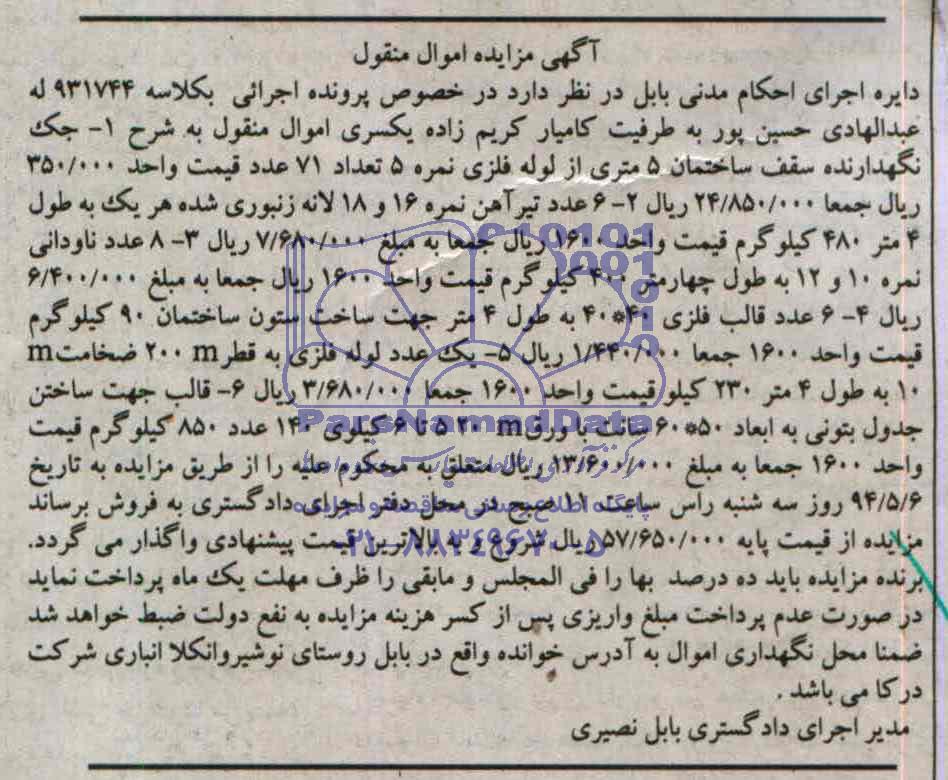 آگهی مزایده اموال منقول
دایره اجرای احکام مدنی بابل در نظر دارد در خصوص پرونده اجرائی بکلاسه ۹۳۱۷۴۴ له
عبدالهادی حسین پور به طرفیت کامیار کریم زاده یکسری اموال منقول به شرح ۱- جک
نگهدارنده سقف ساختمان ۵ متری از لوله فلزی نمره ۵ تعداد ۷۱ عدد قیمت واحد ۳۵۰/۰۰۰
ریال جمعا ۲۴/۸۵۰/۰۰۰ ریال ۲- ۶ عدد تیرآهن نمره ۱۶ و ۱۸ لانه زنبوری شده هر یک به طول
۴ متر ۴۸۰ کیلو گرم قیمت واحد ۱۶۰۰ ریال جمعا به مبلغ ۷/۶۸۰/۰۰۰ ریال ۳- ۸ عدد ناودانی
نمره ۱۰ و ۱۲ به طول چهارمتر ۴۰۰ کیلو گرم قیمت واحد ۱۶۰۰ ریال جمعا به مبلغ ۶/۴۰۰/۰۰۰
ریال ۴- ۶ عدد قالب فلزی ۴۰*۴۰ به طول ۴ متر جهت ساخت ستون ساختمان ۹۰ کیلو گرم
قیمت واحد ۱۶۰۰ جمعا ۱/۴۴۰/۰۰۰ ریال ۵- یک عدد لوله فلزی به قطر m ۲۰۰ ضخامت m
۱۰ به طول ۴ متر ۲۳۰ کیلو قیمت واحد ۱۶۰۰ جمعا ۳/۶۸۰/۰۰۰ ریال ۶- قالب جهت ساختن
جدول بتونی به ابعاد ۵۰*۶۰ سانت با ورق m ۲۰ ۵ تا ۶ کیلوی ۱۴۰ عدد ۸۵۰ کیلو گرم قیمت
واحد ۱۶۰۰ جمعا به مبلغ ۱۳/۶۰۰/۰۰۰ ریال متعلق به محکوم علیه را از طریق مزایده به تاریخ
۹۴/۵/۶ روز سه شنبه راس ساعت ۱۱ صبح در محل دفتر اجرای دادگستری به فروش برساند
مزایده از قیمت پایه ۵۷/۶۵۰/۰۰۰ ریال شروع و به بالاترین قیمت پیشنهادی واگذار می گردد.
برنده مزایده باید ده درصد بها را فی المجلس و مابقی را ظرف مهلت یک ماه پرداخت نماید
در صورت عدم پرداخت مبلغ واریزی پس از کسر هزینه مزایده به نفع دولت ضبط خواهد شد
ضمنا محل نگهداری اموال به آدرس خوانده واقع در بابل روستای نوشیروانکلا انباری شرکت
درکا می باشد .
مدیر اجرای دادگستری بابل نصیری
ParsNamadData